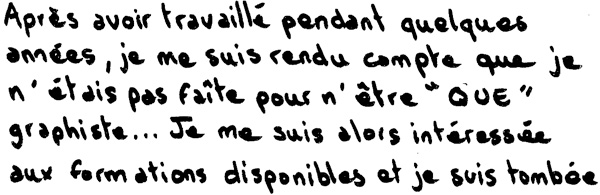 Après avoir travaillé pendant quelques
années, je me suis rendu compte que je
n'étais pas faîte pour n'être "QUE"
graphiste... Je me suis alors intéressée
aux formations disponibles et je suis tombée